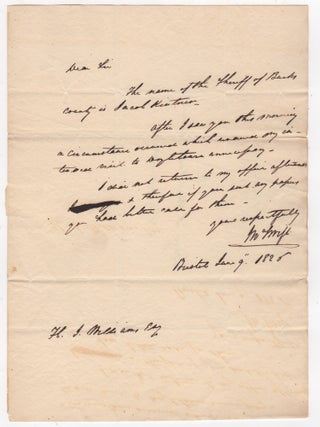 Dear Sir
The name of the Sheriff of Bucks
county is Jacob
After I saw you this morning
a circumstance occurred which rendered my in-
tended visit to unnecessary -
I did not return to my office afterwards
& therefore if you sent any papers
you had better call for them -
yours respectfully
Bristol Jan 9. 1826
H. J. Williams Esq